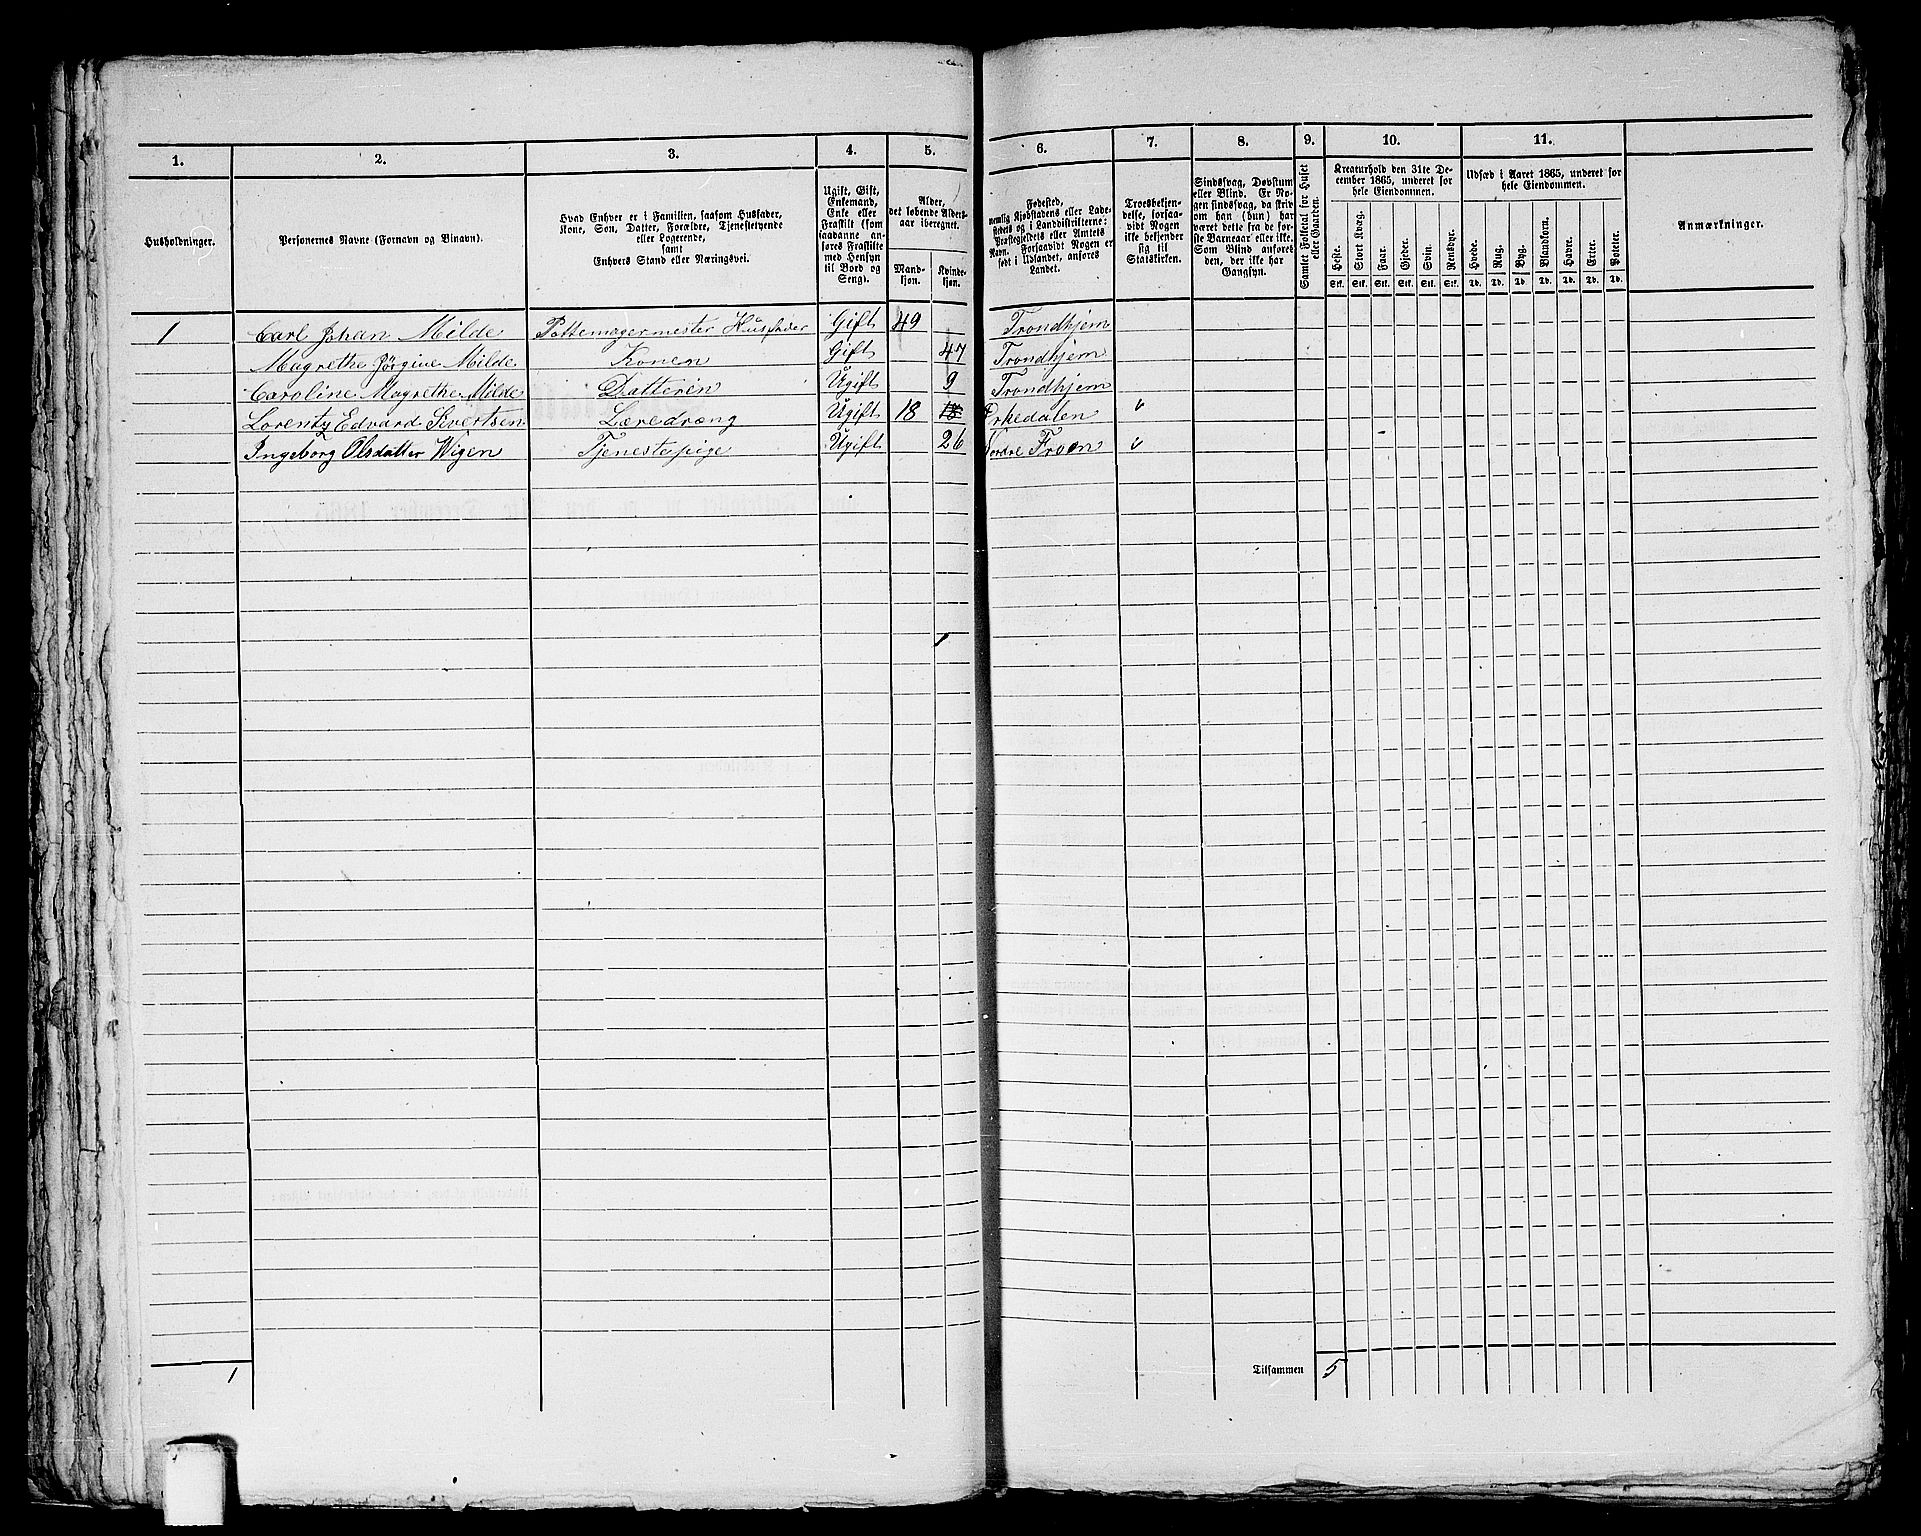 1. 2. 3. 4. 5. 6. 7. 8. 9. 10. 11.
Husholdninger.
Personernes Navne (Fornavn og Binavn).
Hvad Enhver er i Familien, saasom Husfader,
Kone, Søn, Datter, Forældre, Tjenestetyende
eller Logerende,
samt
Enhvers Stand eller Næringsvei.
Ugift, Gift,
Enkemand,
Enke eller
Fraskilt (som
saadanne an-
føres Fraskilte
med Hensyn
til Bord og
Seng).
Alder,
det løbende Alders-
aar iberegnet.
Mand-
kjøn.
Kvinde-
kjøn.
Fødested,
nemlig Kjøbstadens eller Lade-
stedets og i Landdistrikterne:
Præstegjeldets eller Amtets
Navn. Forsaavidt Nogen er
født i Udlandet, anføres
Landet.
Troesbekjen-
delse, forsaa-
vidt Nogen
ikke bekjender
sig til
Statskirken.
Sindssvag, Døvstum
eller Blind. Er No-
gen sindssvag, da skriv
om han (hun) har
været dette fra de før-
ste Barneaar eller ikke.
Som Blind anføres
den, der ikke har
Gangsyn.
Samlet Folketal for Huset
eller Gaarden.
Kreaturhold den 31te De-
cember 1865, underet for
hele Eiendommen.
Heste. Stort Kvæg. Faar. Gjeder. Svin. Rensdyr.
Stk. Stk. Stk. Stk. Stk. Stk.
Udsæd i Aaret 1865, underet for
hele Eiendommen.
Hvede. Rug. Byg. Blandkorn. Havre. Erter. Poteter.
Td. Td. Td. Td. Td. Td. Td.
Anmærkninger.
1 Carl Johan Milde Pottemagermester Husfader Gift 49 Trondhjem
Magrethe Jörgine Milde Konen Gift 47 Trondhjem
Caroline Magrethe Milde Datteren Ugift 9 Trondhjem
Lorentz Edvard Sivertsen Læredræng Ugift 18 18 Orkedalen
Ingeborg Olsdatter Wigen Tjenestepige Ugift 26 Nordre Froen
1 Tilsammen 5